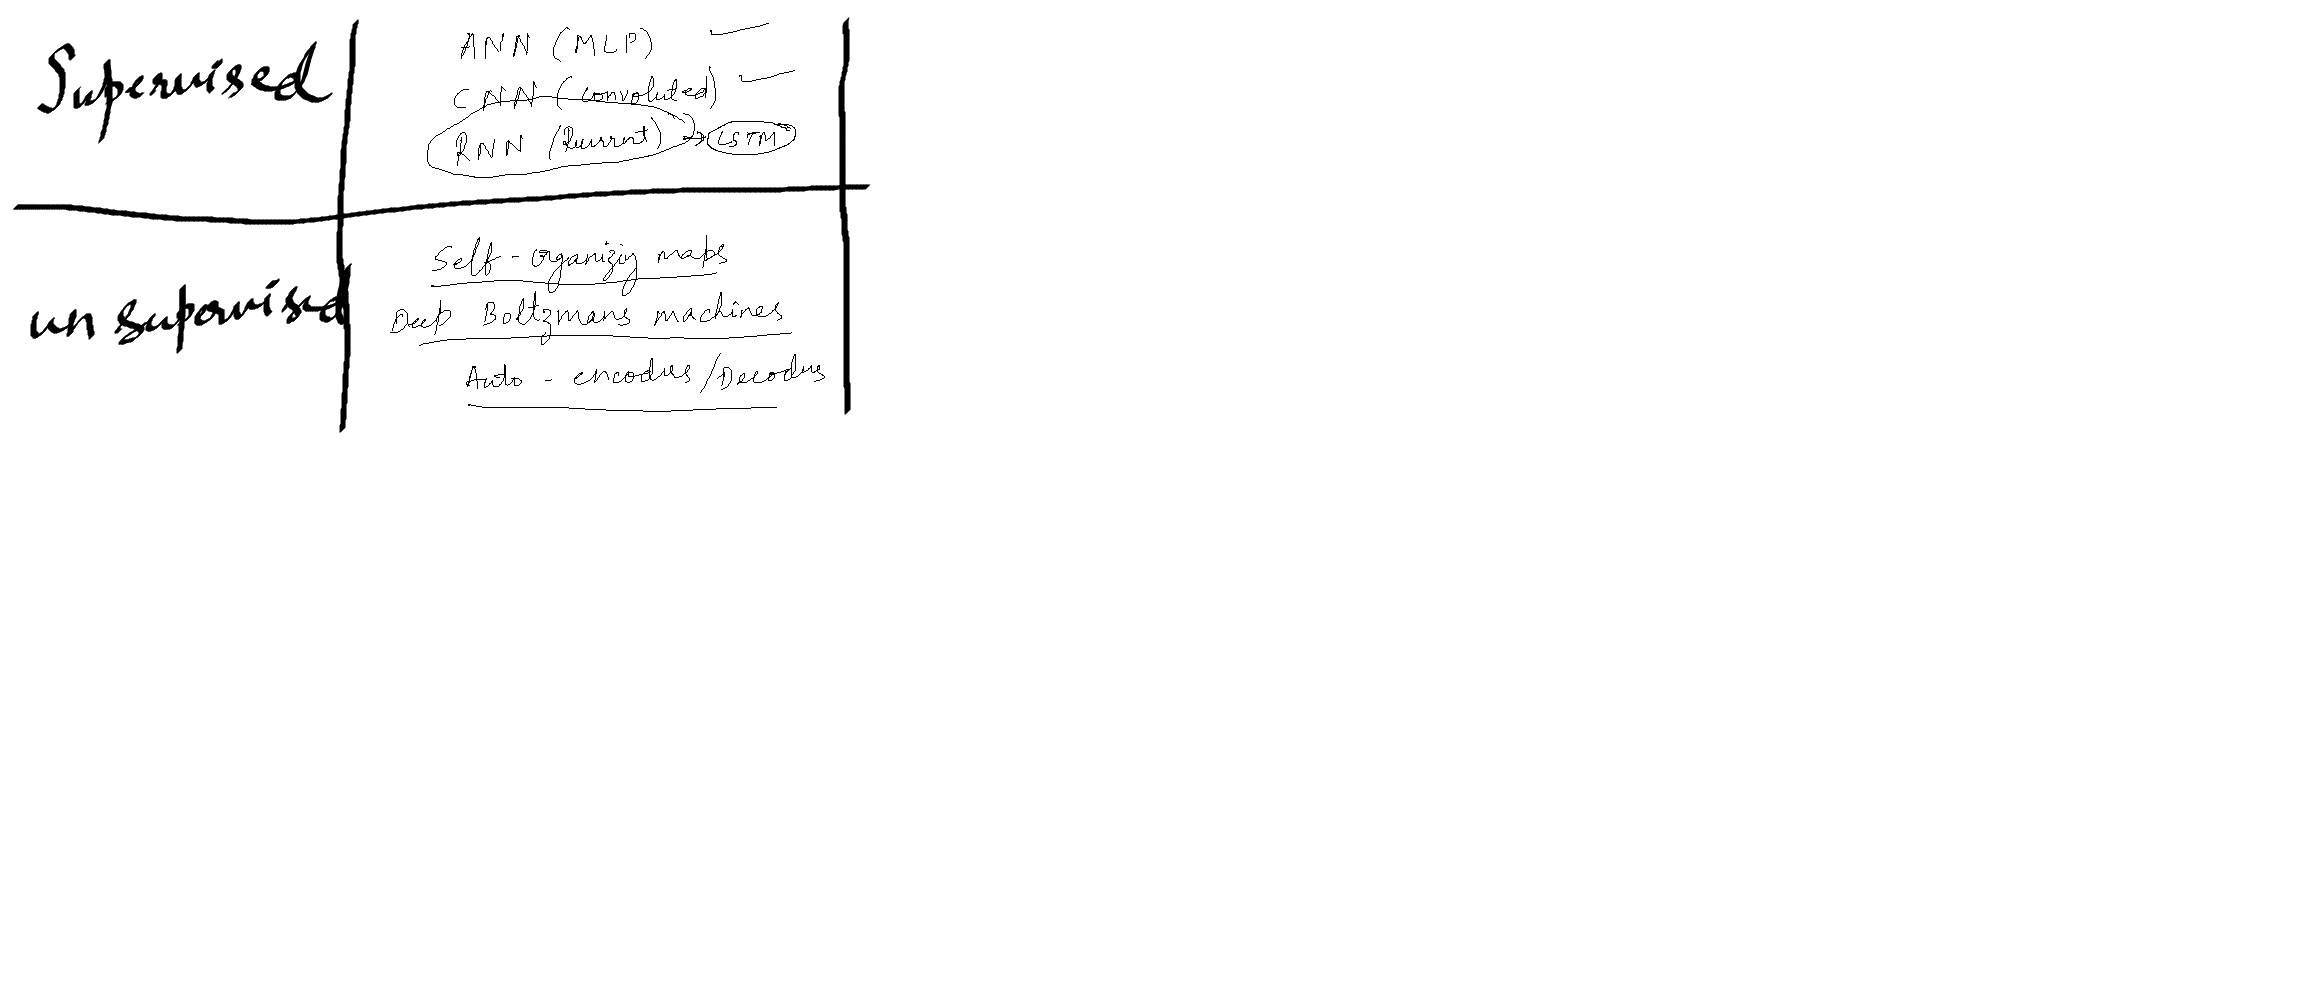 Supervised
ANN (MLP)
CNN (convoluted)
RNN (Recurrent) → LSTM
unsupervised
Self-organizing maps
Deep Boltzmans machines
Auto-encoders/Decoders